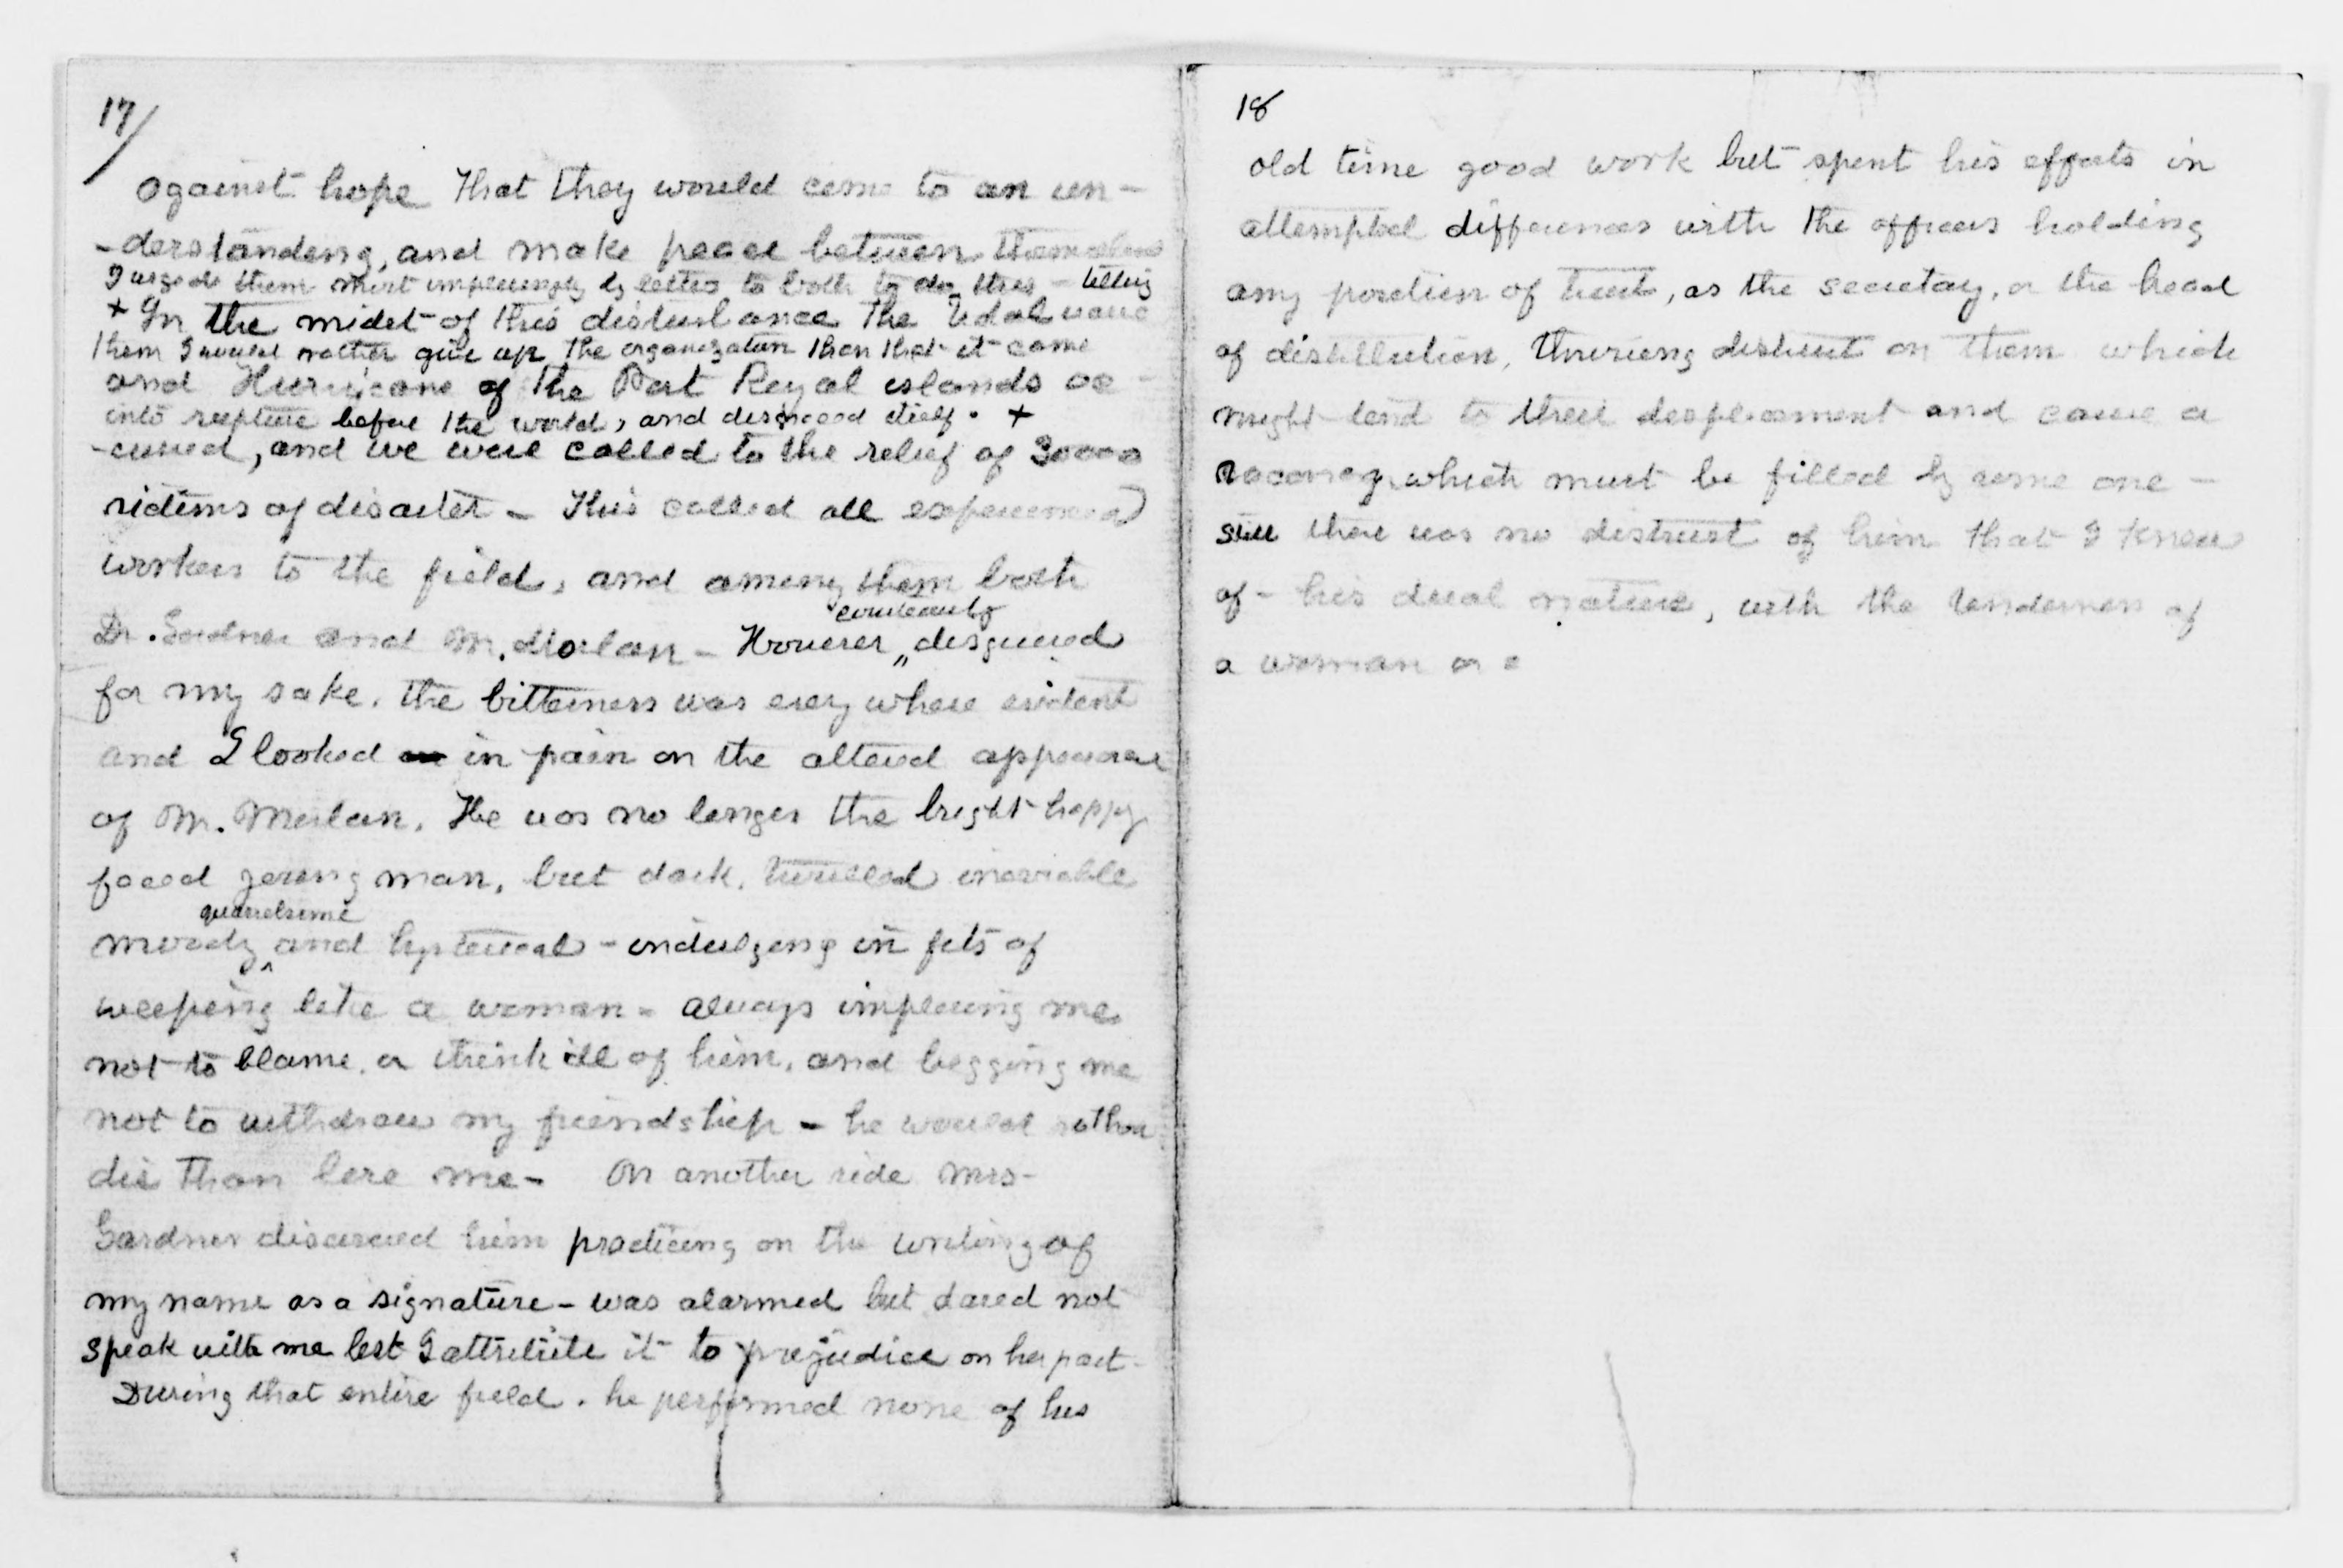 17/
against hope that they would come to an un-
-derstanding, and make peace between themselves
I urged them most imploringly by letter to both to do this - telling
+ In the midst of this disturbance the tidal wave
them I would rather give up the organization than that it come
and Hurricane of the Port Royal islands oc-
into rupture before the world, and disgraced itself. +
-curred, and we were called to the relief of 30000
victims of disaster - This called all experienced
workers to the field, and among them both
courteously
Dr. Gardner and Mr. Morlan - However „ disguised
for my sake, the bitterness was every where evident
and I looked in pain on the altered appearance
of Mr. Morlan. He was no longer the bright happy
faced young man, but dark, troubled
quarrelsome
moody ^ and hysterical - indulging in fits of
weeping like a woman - always imploring me
not to blame, or think ill of him, and begging me
not to withdraw my friendship - he would rather
die than lose me - On another side Mrs-
Gardner discovered him practicing on the writing of
my name as a signature - was alarmed but dared not
speak with me lest I attribute it to prejudice on her part -
During that entire field. he performed none of his
18
old time good work but spent his efforts in
attempted differences with the officers holding
any position of trust, as the secretary, or the head
of distribution, throwing distrust on them which
might tend to their displacement and cause a
vacancy which must be filled by some one -
still there was no distrust of him that I knew
of - his dual nature, with the tenderness of
a woman or a